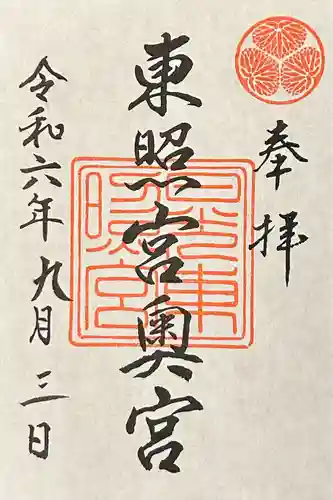 奉拝
東照宮奥宮
令和六年九月三日